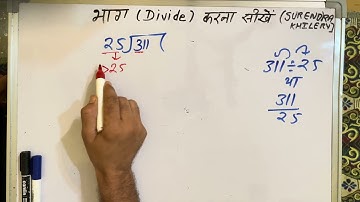 भाग (Divide) करना सीखें (SURENDRA
KHILERY)
25)311(
>25
311÷25
या
311
25